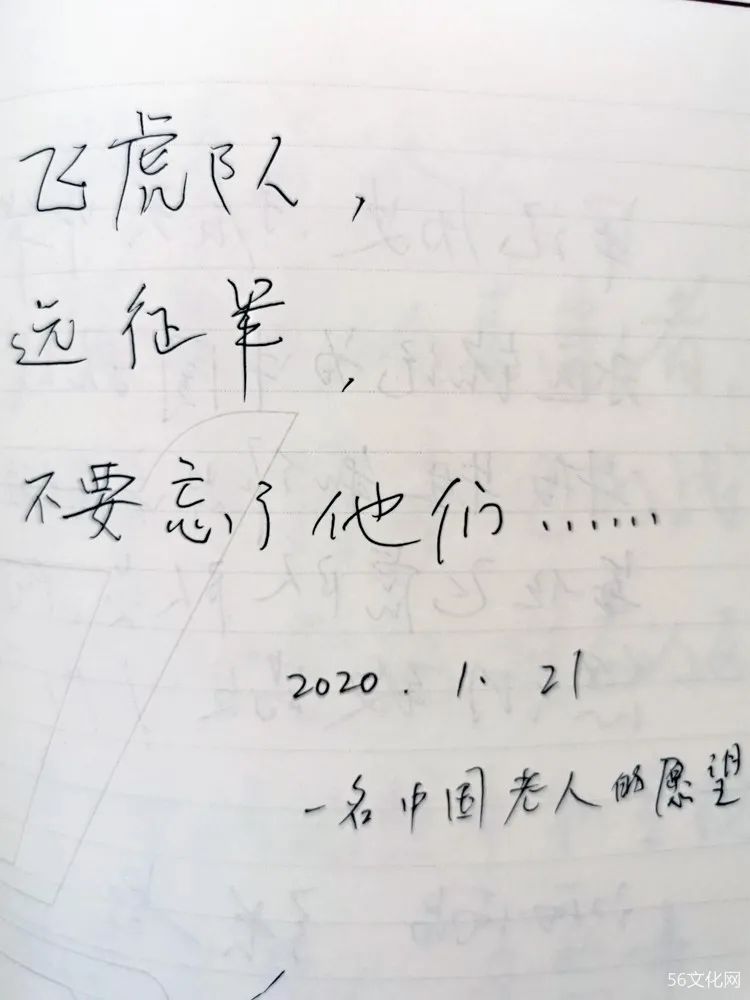 飞虎队，
远征军，
不要忘了他们……
2020.1.21
一名中国老人的愿望
56文化网